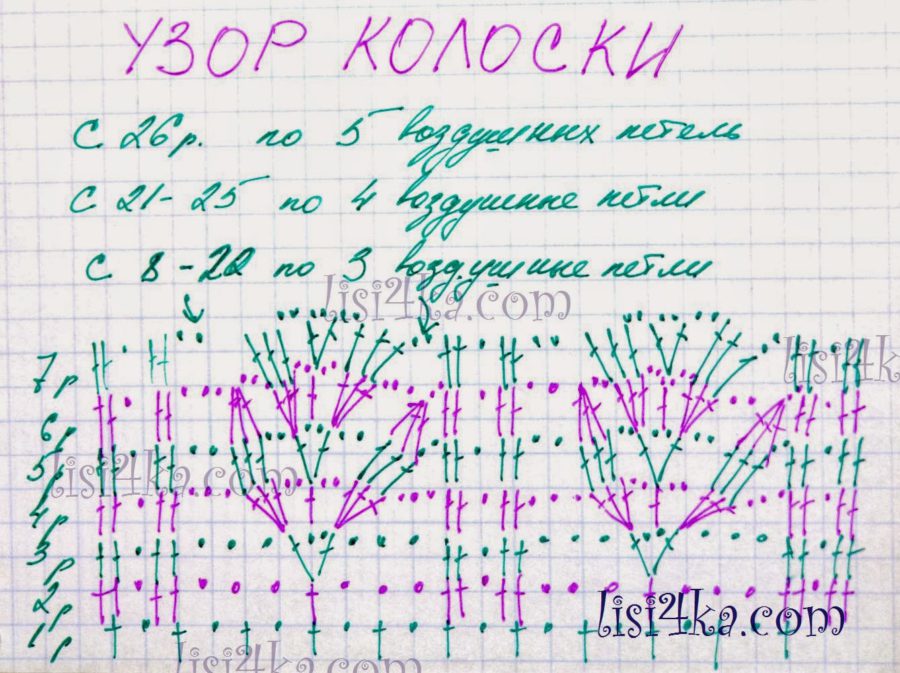 УЗОР КОЛОСКИ
С 26р. по 5 воздушных петель
С 21-25 по 4 воздушные петли
С 8-20 по 3 воздушные петли
lisi4ka.com
lisi4ka
7р
6р
5р
lisi4ka.com
4р
3р
2р
lisi4ka.com
1р
lisi4ka.com